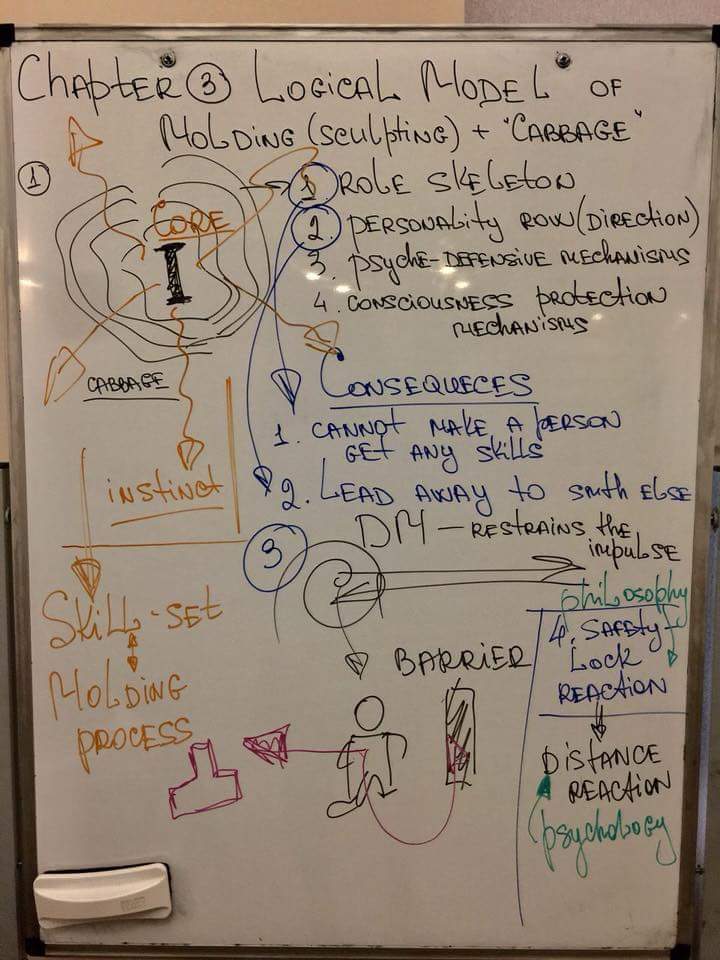 Chapter ③ Logical Model of
Molding (sculpting) + "Cabbage"
①
Core
I
CABBAGE
instinct
1 Role skeleton
2 Personality row (direction)
3. psyche-defensive mechanisms
4. consciousness protection
mechanisms
Consequeces
1. cannot make a person
get any skills
2. Lead away to smth else
3
DM – restrains the
impulse
Skill-set
Molding
process
BARRIER
philosophy
4. Safety-
Lock
reaction
Distance
reaction
psychology